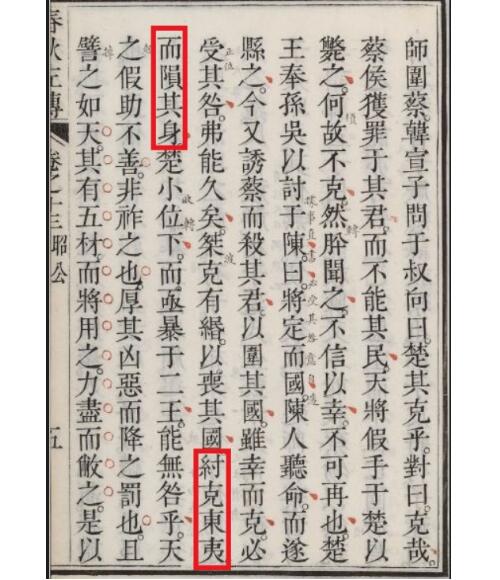 師圍蔡韓宣子問于叔向曰楚其克乎對曰克哉
蔡侯獲罪于其君而不能其民天將假手于楚以
斃之何故不克然肸聞之不信以幸不可再也楚
王奉孫吳以討于陳曰將定而國陳人聽命而遂
縣之今又誘蔡而殺其君以圍其國雖幸而克必
受其咎弗能久矣桀克有緡以喪其國紂克東夷
而隕其身楚小位下而亟暴于二王能無咎乎天
之假助不善非祚之也厚其凶惡而降之罰也且
譬之如天其有五材而將用之力盡而敝之是以
春秋左傳 卷之十三 昭公 五